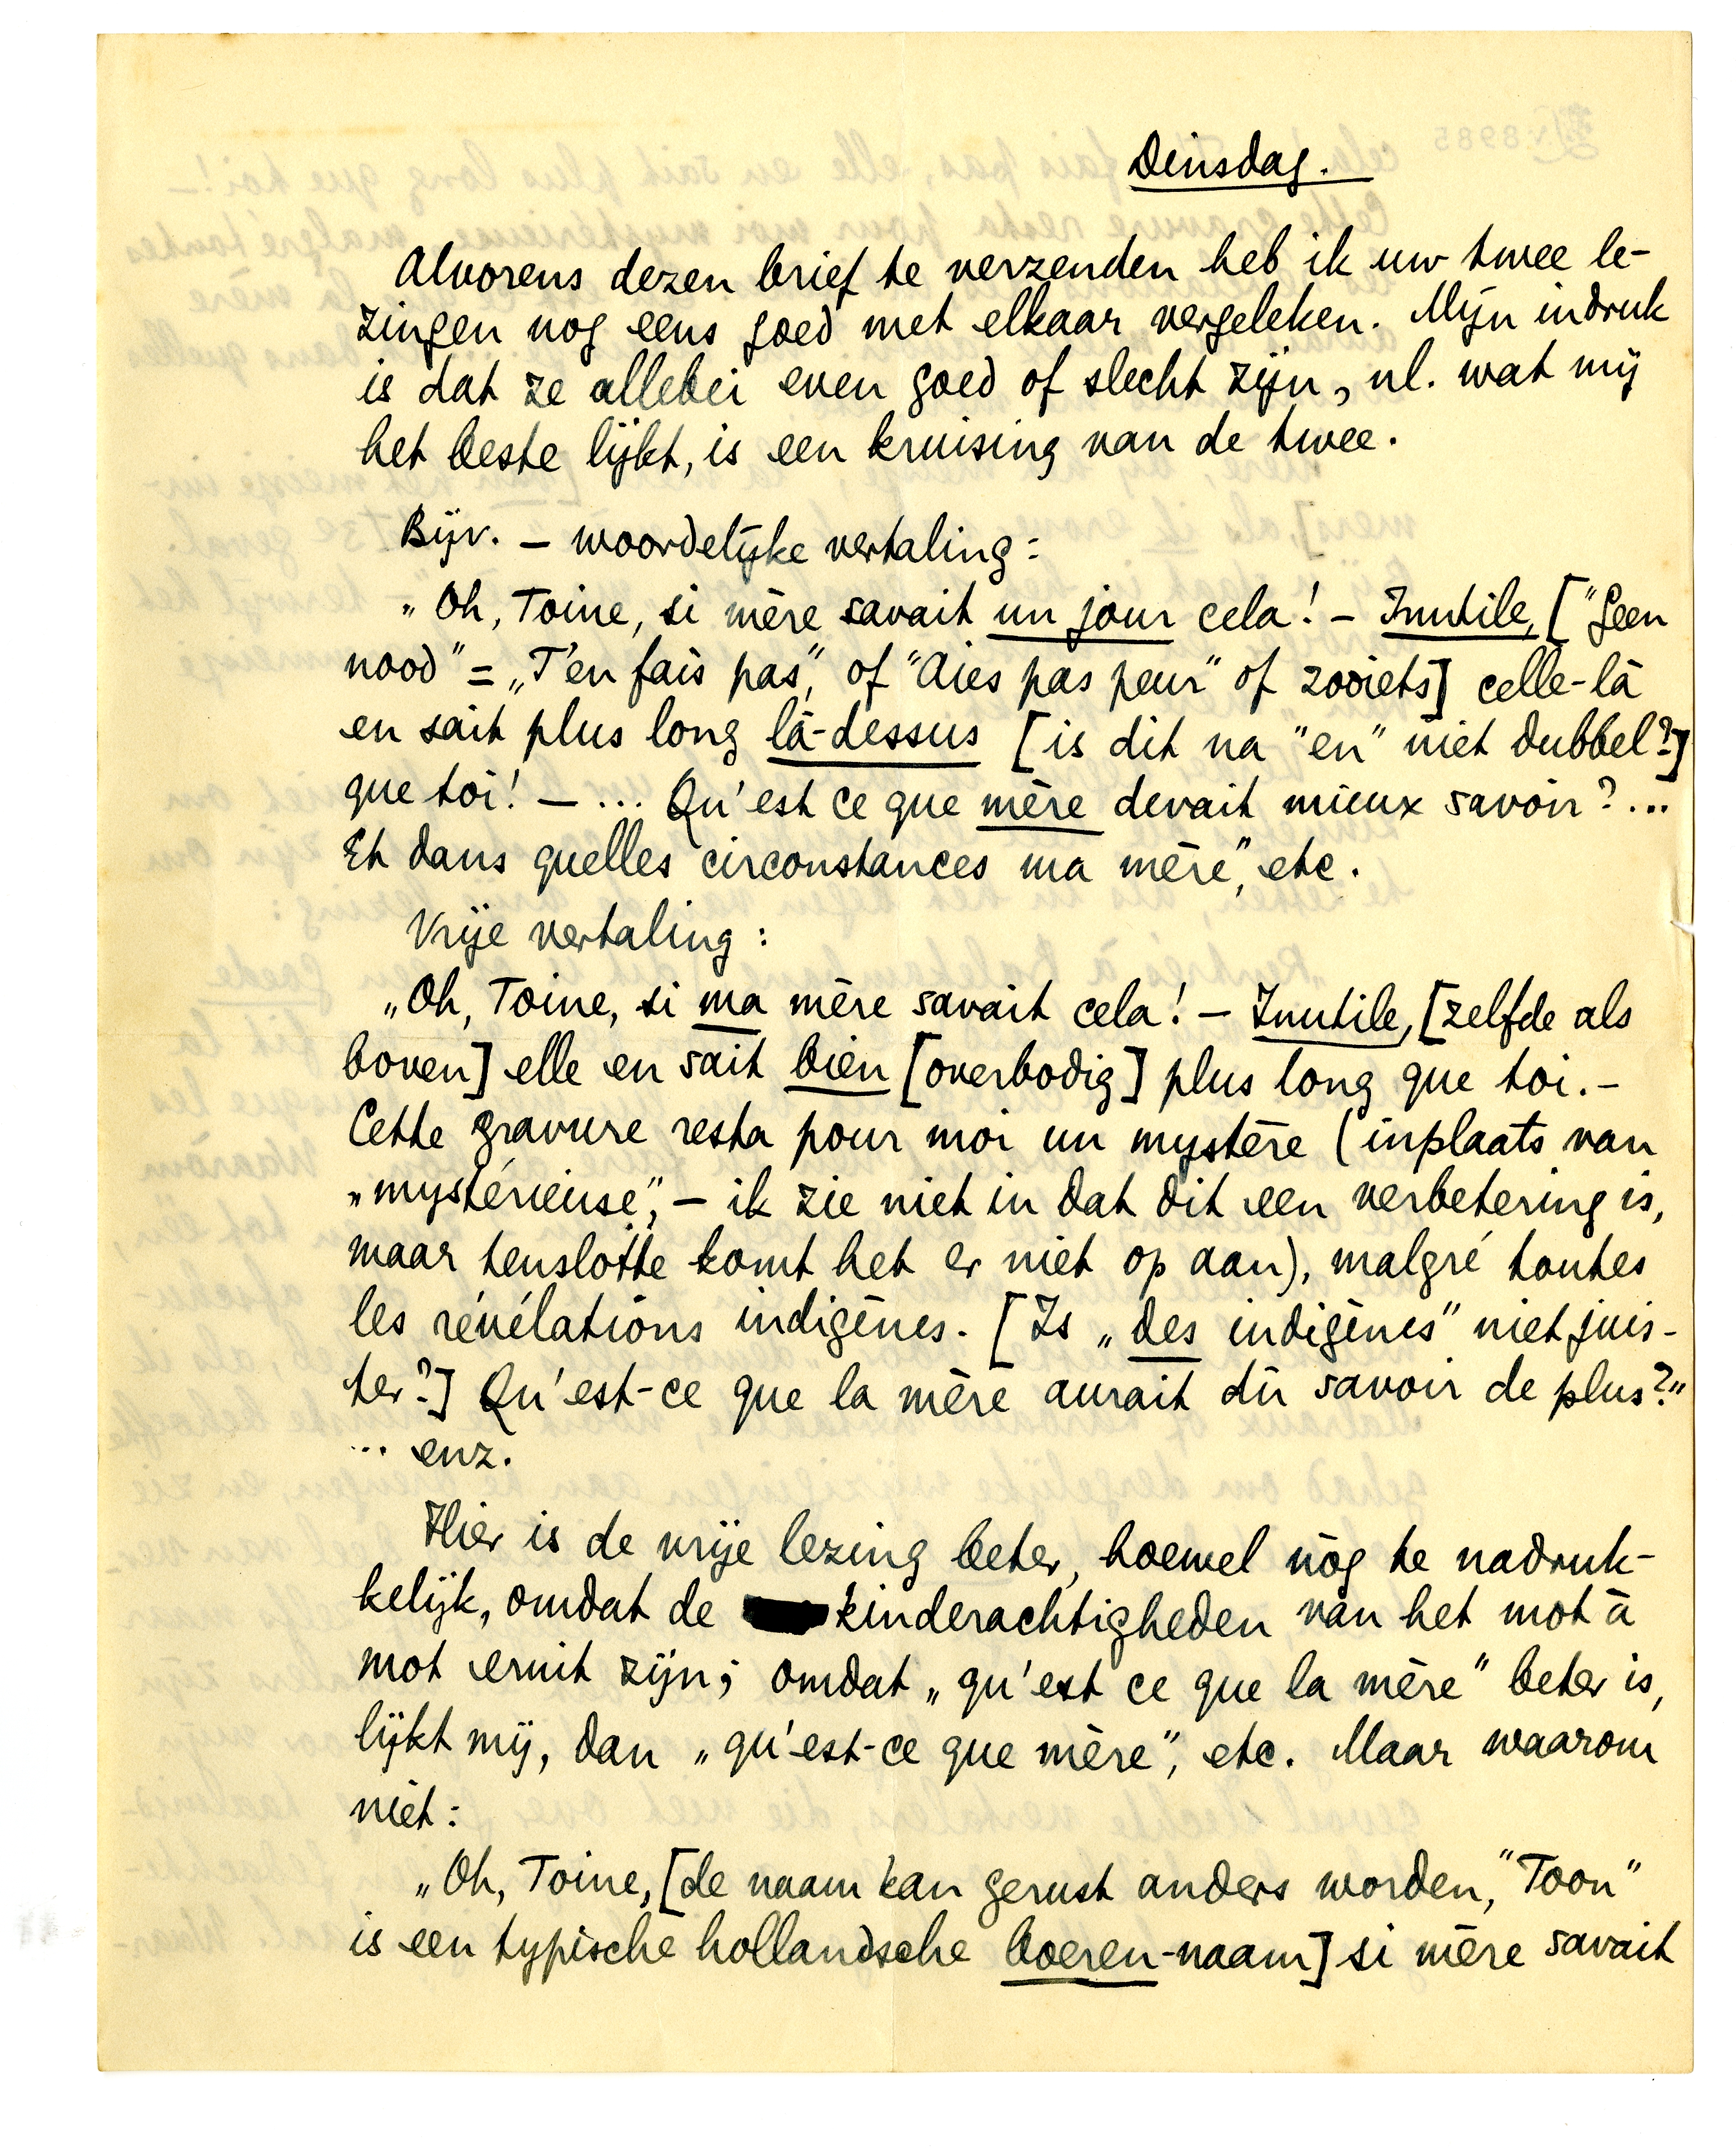 Dinsdag.
Alvorens dezen brief te verzenden heb ik uw twee le-
zingen nog eens goed met elkaar vergeleken. Mijn indruk
is dat ze allebei even goed of slecht zijn, nl. wat mij
het beste lijkt, is een kruising van de twee.
Bijv. – woordelijke vertaling:
„Oh, Toine, si mère savait un jour cela! – Inutile, ["Geen
nood" = „T'en fais pas", of "Aies pas peur" of zooiets] celle-là
en sait plus long là-dessus [is dit na "en" niet dubbel?]
que toi! – ... Qu'est ce que mère devait mieux savoir?...
Et dans quelles circonstances ma mère", etc.
Vrije vertaling:
„Oh, Toine, si ma mère savait cela! – Inutile, [zelfde als
boven] elle en sait bien [overbodig] plus long que toi. –
Cette gravure resta pour moi un mystère (inplaats van
„mystérieuse", – ik zie niet in dat dit een verbetering is,
maar tenslotte komt het er niet op aan), malgré toutes
les révélations indigènes. [Is „des indigènes" niet juis-
ter?] Qu'est-ce que la mère aurait dû savoir de plus?"
... enz.
Hier is de vrije lezing beter, hoewel nòg te nadruk-
kelijk, omdat de kinderachtigheden van het mot à
mot eruit zijn; omdat „qu'est ce que la mère" beter is,
lijkt mij, dan „qu'est-ce que mère", etc. Maar waarom
niet:
„Oh, Toine, [de naam kan gerust anders worden, "Toon"
is een typische hollandsche boeren-naam] si mère savait